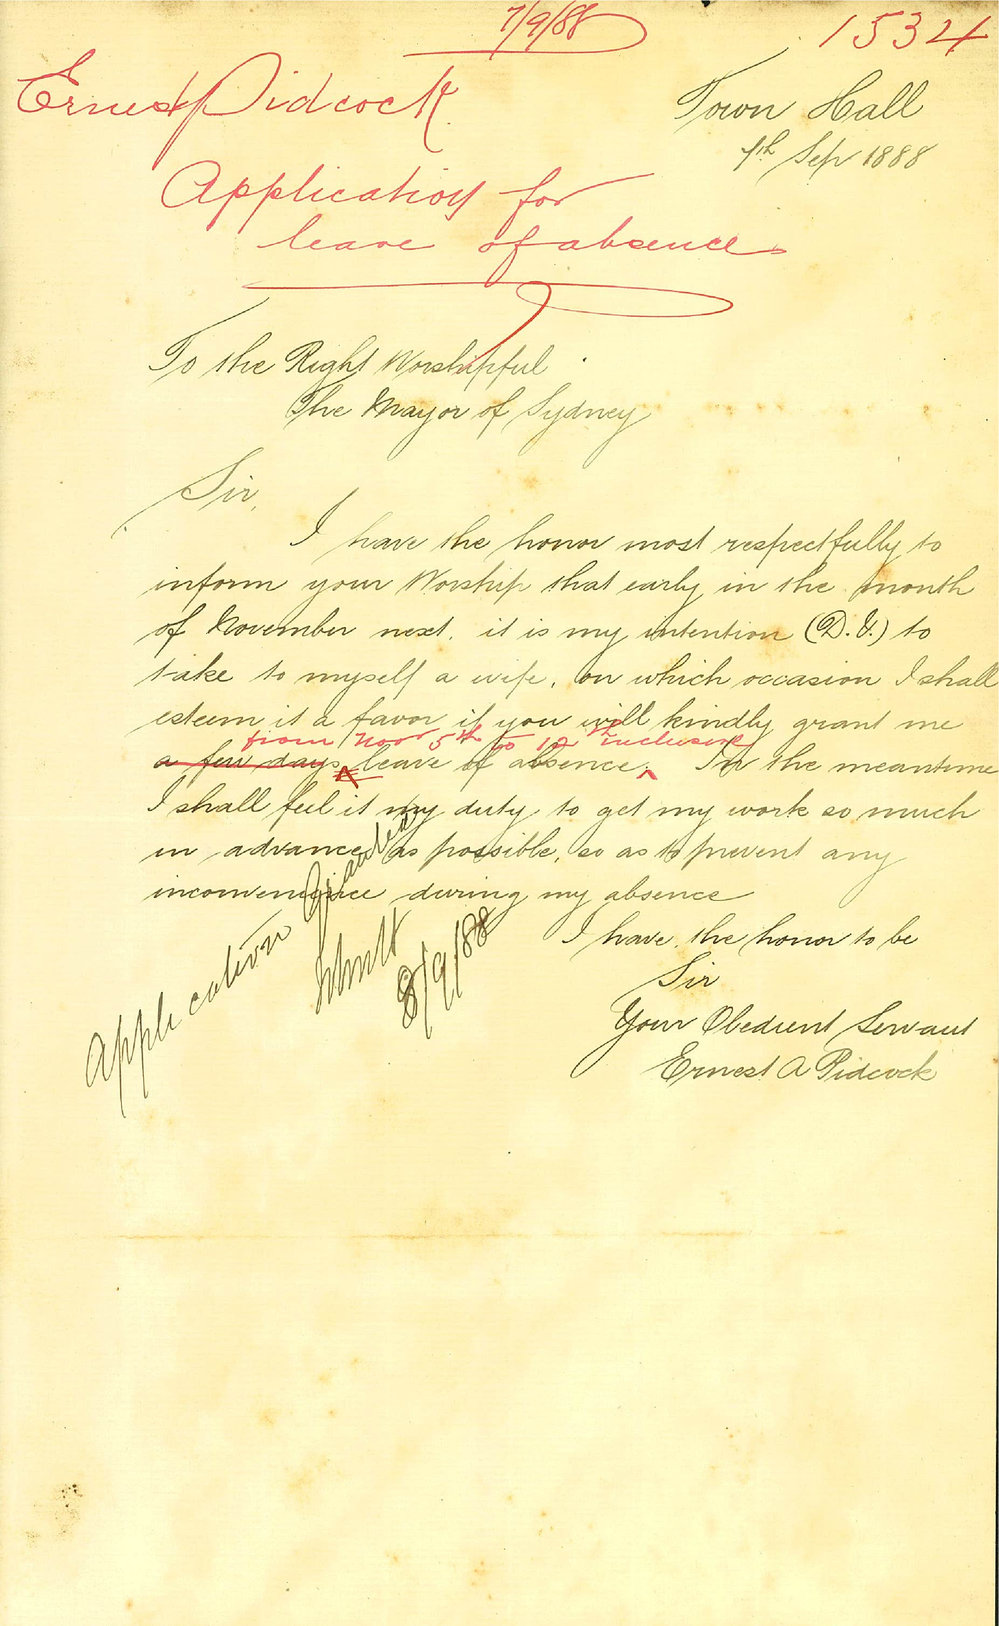 7/9/88
1534
Ernest Pidcock
Application for
leave of absence
Town Hall
7th Sep 1888
To the Right Worshipful
The Mayor of Sydney
Sir,
I have the honor most respectfully to
inform your Worship that early in the month
of November next, it is my intention (D.V.) to
take to myself a wife, on which occasion I shall
esteem it a favor if you will kindly grant me
from Novr 5th to 12th inclusive
a few days leave of absence. In the meantime
I shall feel it my duty to get my work so much
in advance as possible, so as to prevent any
inconvenience during my absence
I have the honor to be
Sir
Your Obedient Servant
Ernest A Pidcock
Application Granted
8/9/88